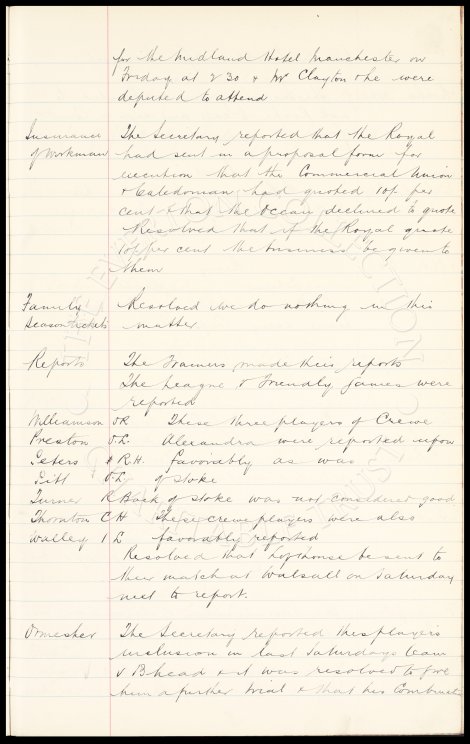 for the Midland Hotel Manchester on
Friday at 2 30 & Mr Clayton & he were
deputed to attend
Insurance of Workman
The Secretary reported that the Royal
had sent in a proposal form for
execution that the Commercial Union
& Caledonian had quoted 10/- per
cent & that the Ocean declined to quote
Resolved that if the Royal quote
10/- per cent the business be given to
them
Family Season Tickets
Resolved we do nothing in this
matter
Reports
The Trainers made their reports
The League & Friendly Games were
reported
Williamson OR These three players of Crewe
Preston OL Alexandra were reported upon
Peters & R.H. favorably as was
OL of Stoke
Turner R Back of Stoke was not considered good
Thornton CH These crewe players were also
Walley IL favorably reported
Resolved that be sent to
their match at Walsall on Saturday
next to report.
Ormesher
The Secretary reported this players
inclusion in last Saturdays team
v Bhead & it was resolved to give
him a further trial & that his